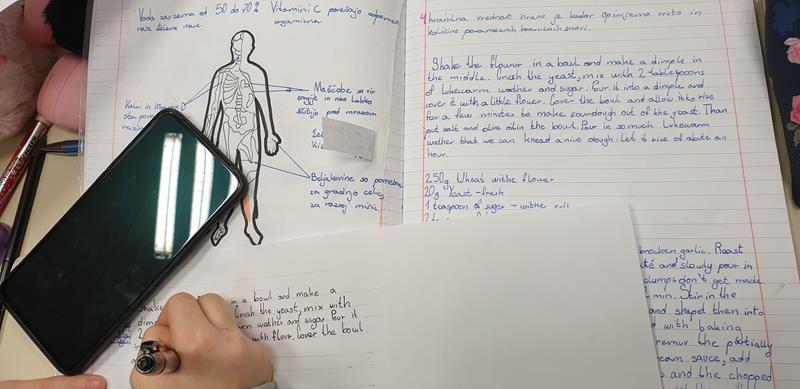 Voda zavzema od 50 do 70%
naše telesne mase
Vitamini C povečajo odpornost
organizma
Kalcij in vitamin D
sta pom
Maščobe so vir
energije in nas lahko
ščitijo pred mrazom
Beljakovine so pomembne
za gradnjo celic,
za razvoj mišic.
4 hranilna vrednost hrane je kadar opisujemo vrsto in
količino posameznih hranilnih snovi.
Shake the flowur in a bowl and make a dimple in
the middle. Crush the yeast, mix with 2 tablespoons
of lukewarm wather and sugar. Pour it into a dimple and
cover it with a little flower. Cover the bowl and allow it to rise
for a few minutes to make sourdough out of the yeast. Than
put salt and olive oil in the bowl. Pour in so much lukewarm
wather that we can knead a nice dough. Let it rise of abute an
hour.
250g Wheat withe flower
20g Yeast - fresh
1 teaspoon of suger - withe
brocken garlic. Roast
and slowly pour in
clumps don't get made.
min. Stir in the
and shapet them into
with baking
the partially
sauce, add
s and the chopped
Shake in a bowl and make a
Crush the yeast, mix with
wather and sugar. Pour it
with flour. Cover the bowl